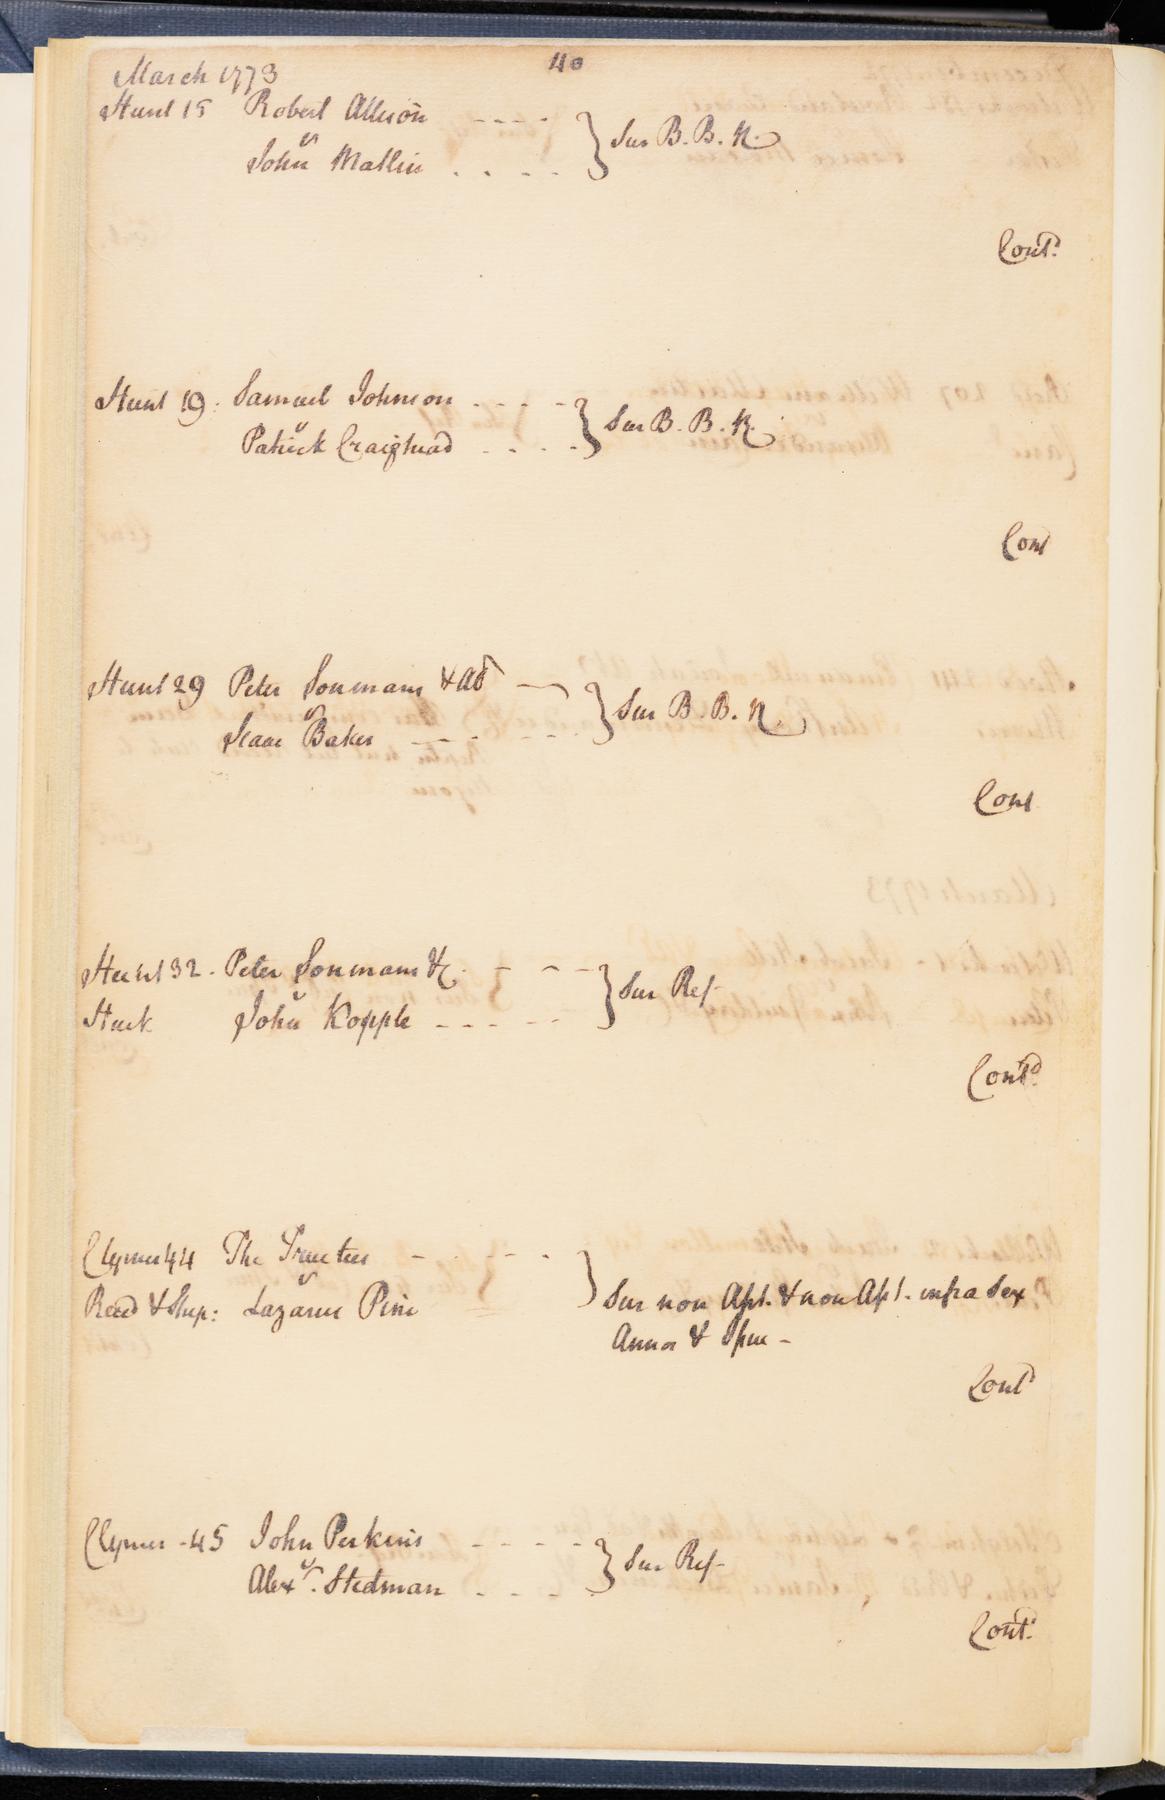 40
March 1773
Hunt 15 Robert Allison - - - -
vs
John Mallin . . . . } Sur B. B. R.
Contd.
Hunt 19. Samuel Johnson . - - - -
v
Patrick Craighead . . . . } Sur B. B. R.
Cont
Hunt 29 Peter Sonmans & Al
vs
Isaac Baker - - - - } Sur B. B. R.
Cont
Hunt 32. Peter Sonmans &c. - - - -
v
Husk John Kopple - - - - - } Sur Ref
Contd.
Clymer 44 The Trustees - - - -
vs
Reed & Ship: Lazarus Pine } Sur non Apt. & non Apt. infra Sex
Annos & Spee -
Contd
Clymer - 45 John Perkins - - - -
vs
Alexr. Stedman - - - . } Sur Ref
Contd.